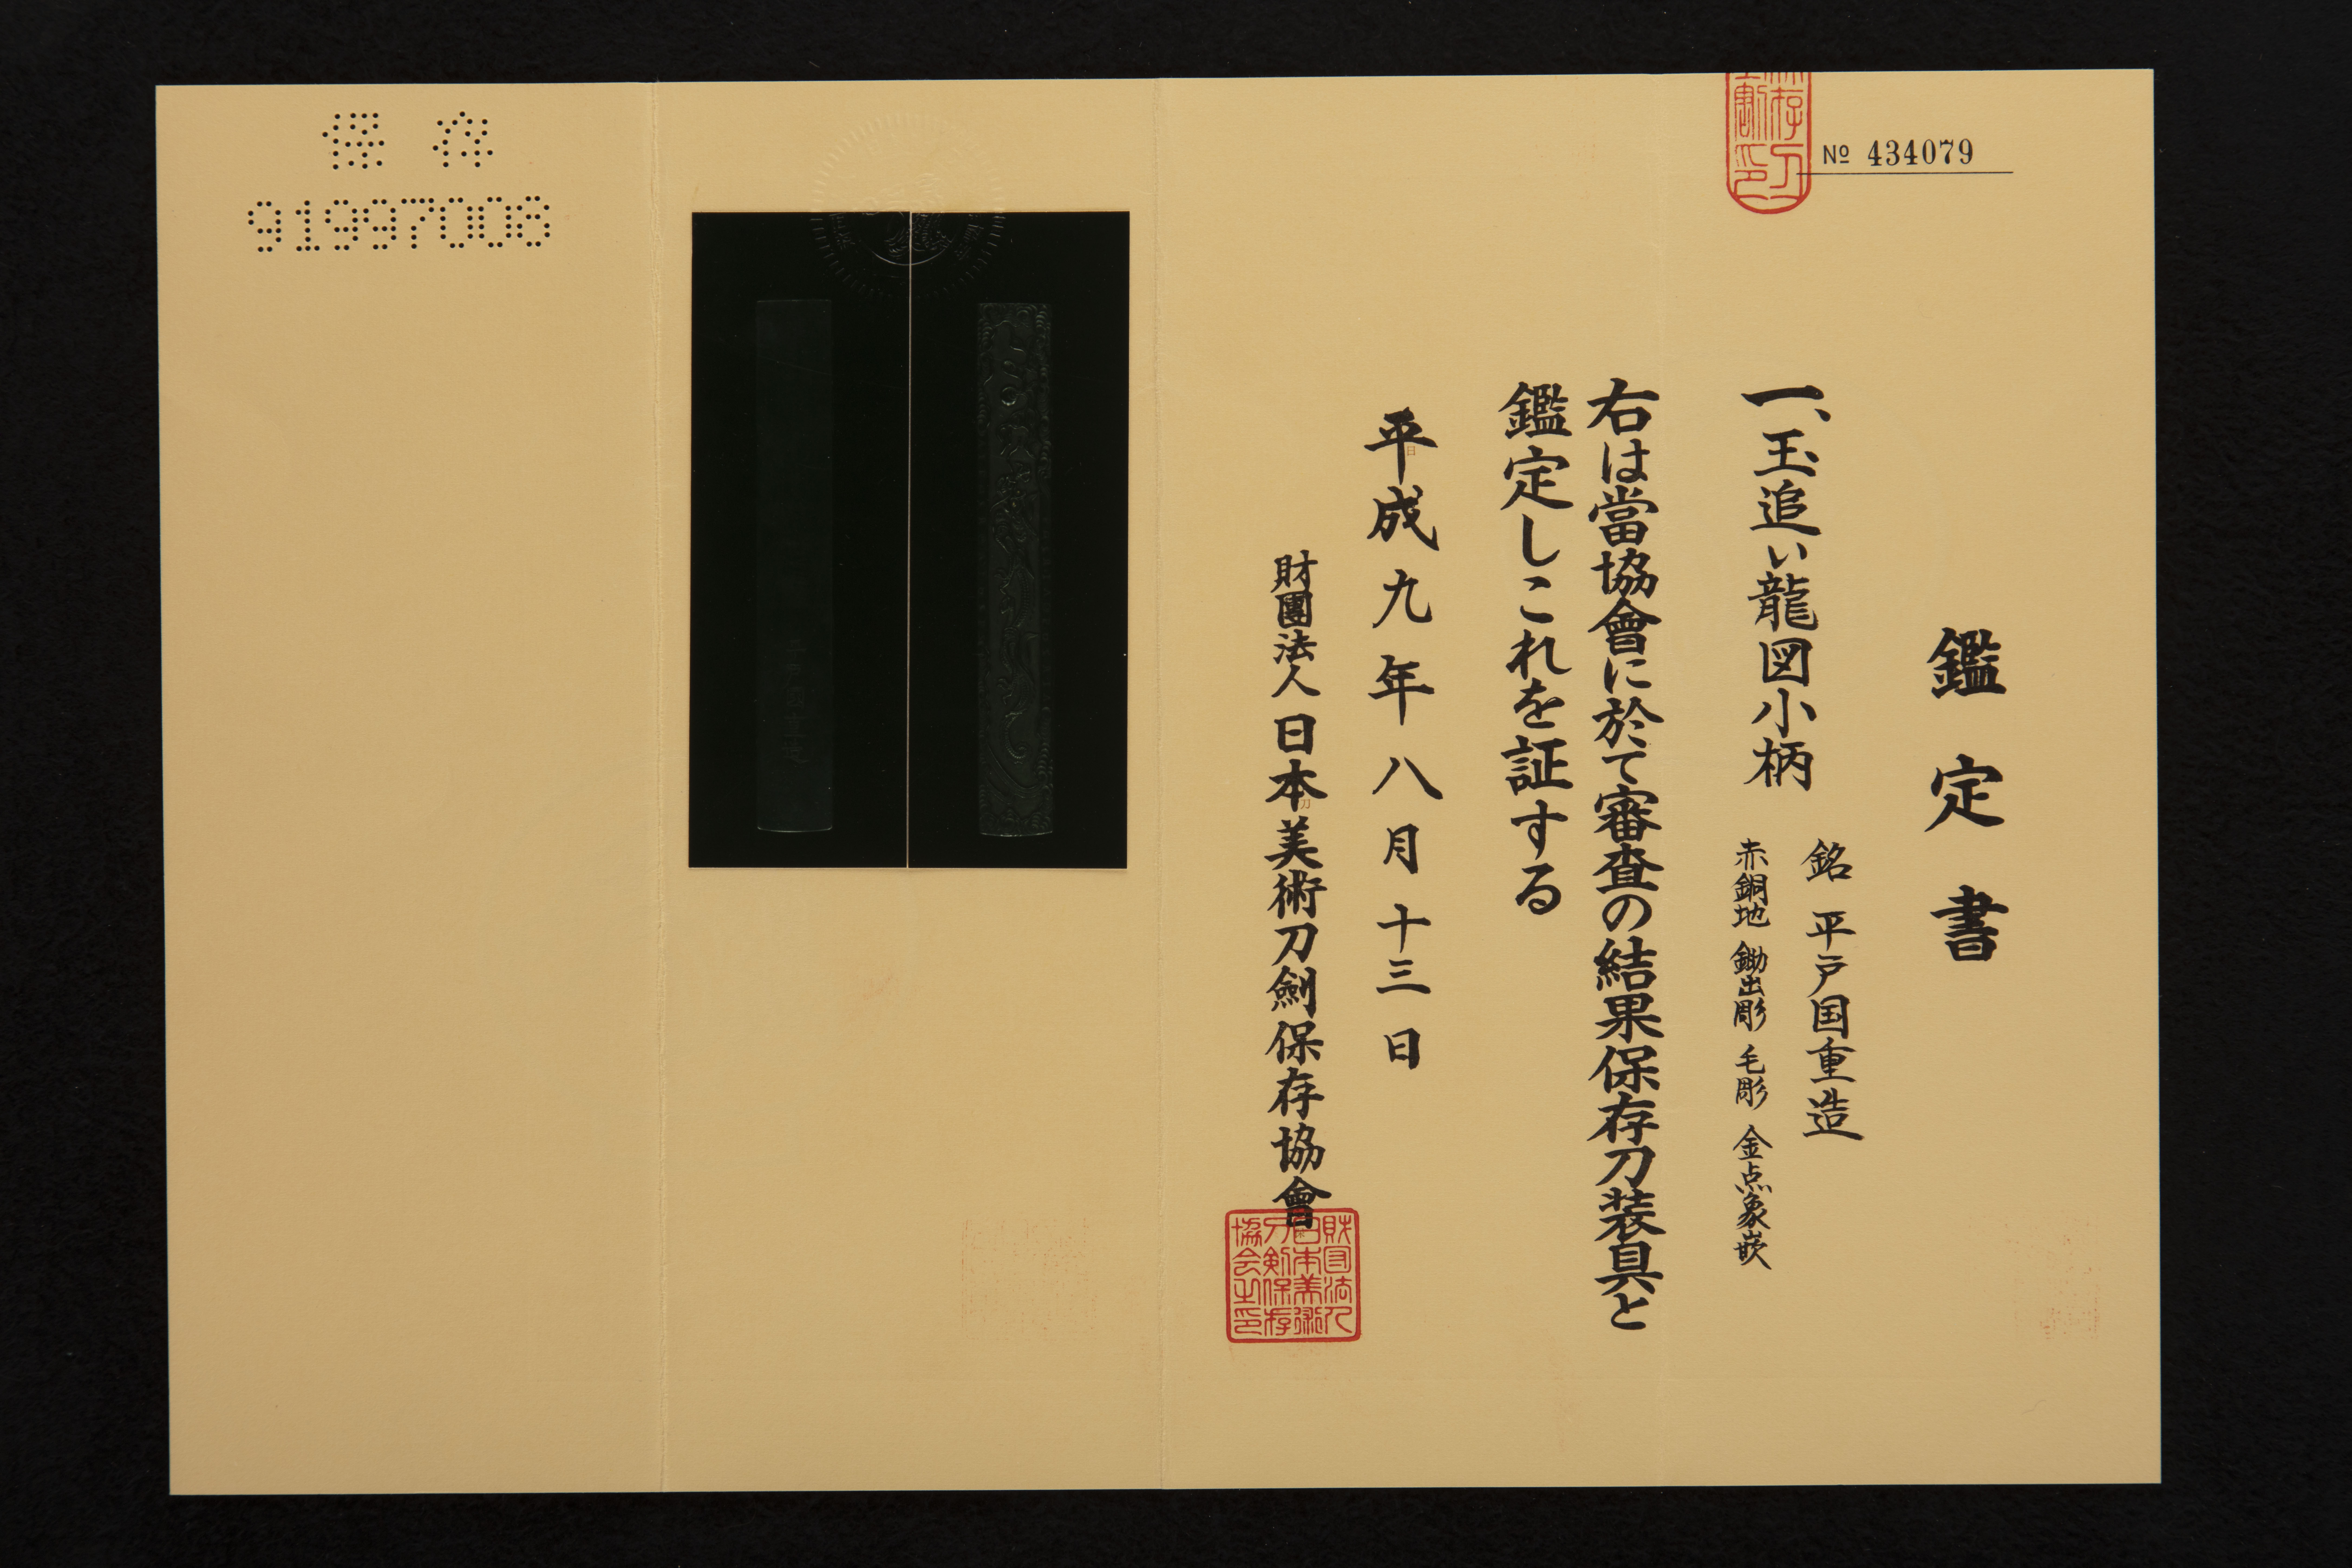 鑑定書
№ 434079
一、玉追い龍図小柄
銘 平戸国重造
赤銅地 鋤出彫 毛彫 金点象嵌
右は當協會に於て審査の結果保存刀装具と
鑑定しこれを証する
平成九年八月十三日
財團法人日本美術刀劍保存協會
財団法人
日本美術
刀剣保存
協会之印
保存
91997006